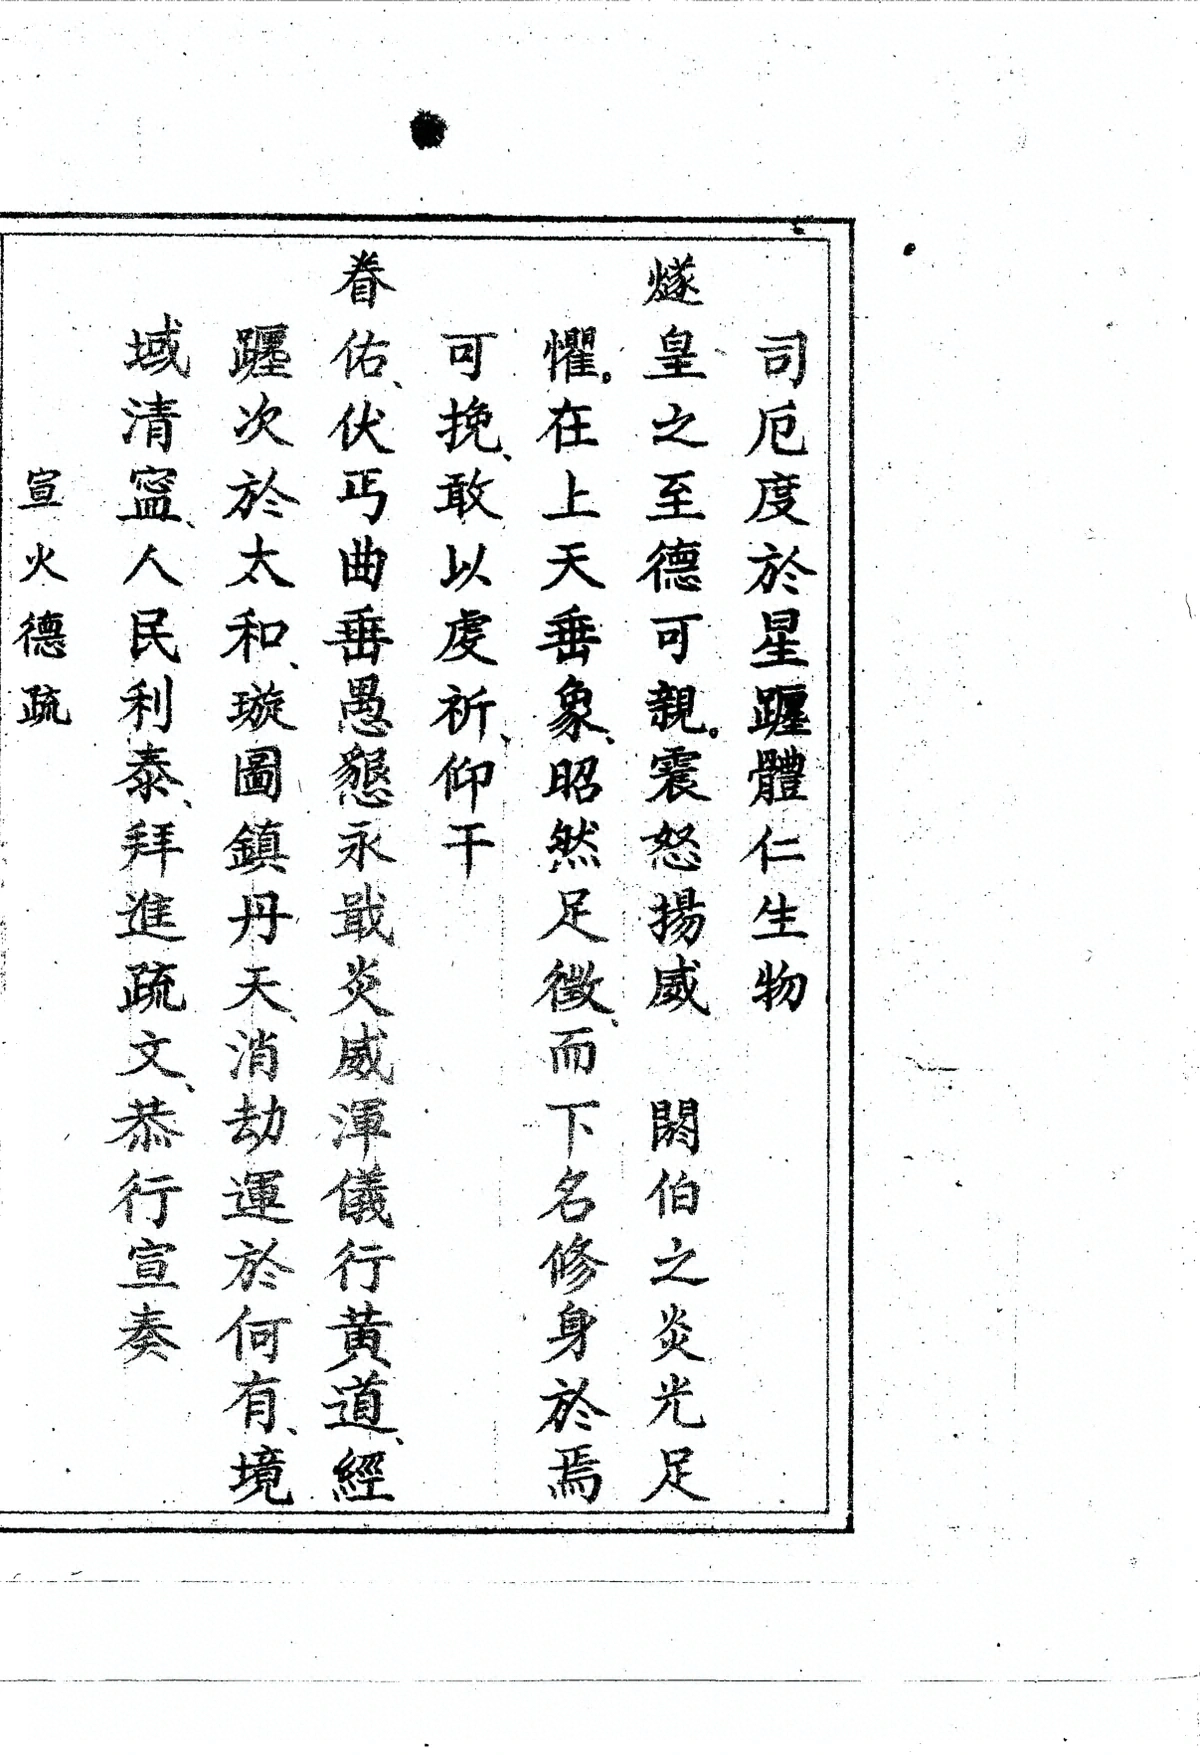 司厄度於星躔體仁生物
燧皇之至德可親。震怒揚威　閼伯之炎光足
懼。在上天垂象、昭然足徵、而下名修身於焉
可挽、敢以虔祈、仰干
眷佑、伏丐曲垂愚懇永戢炎威渾儀行黃道、經
躔次於太和、璇圖鎮丹天、消劫運於何有、境
域清寍、人民利泰、拜進疏文、恭行宣奏
宣火德疏